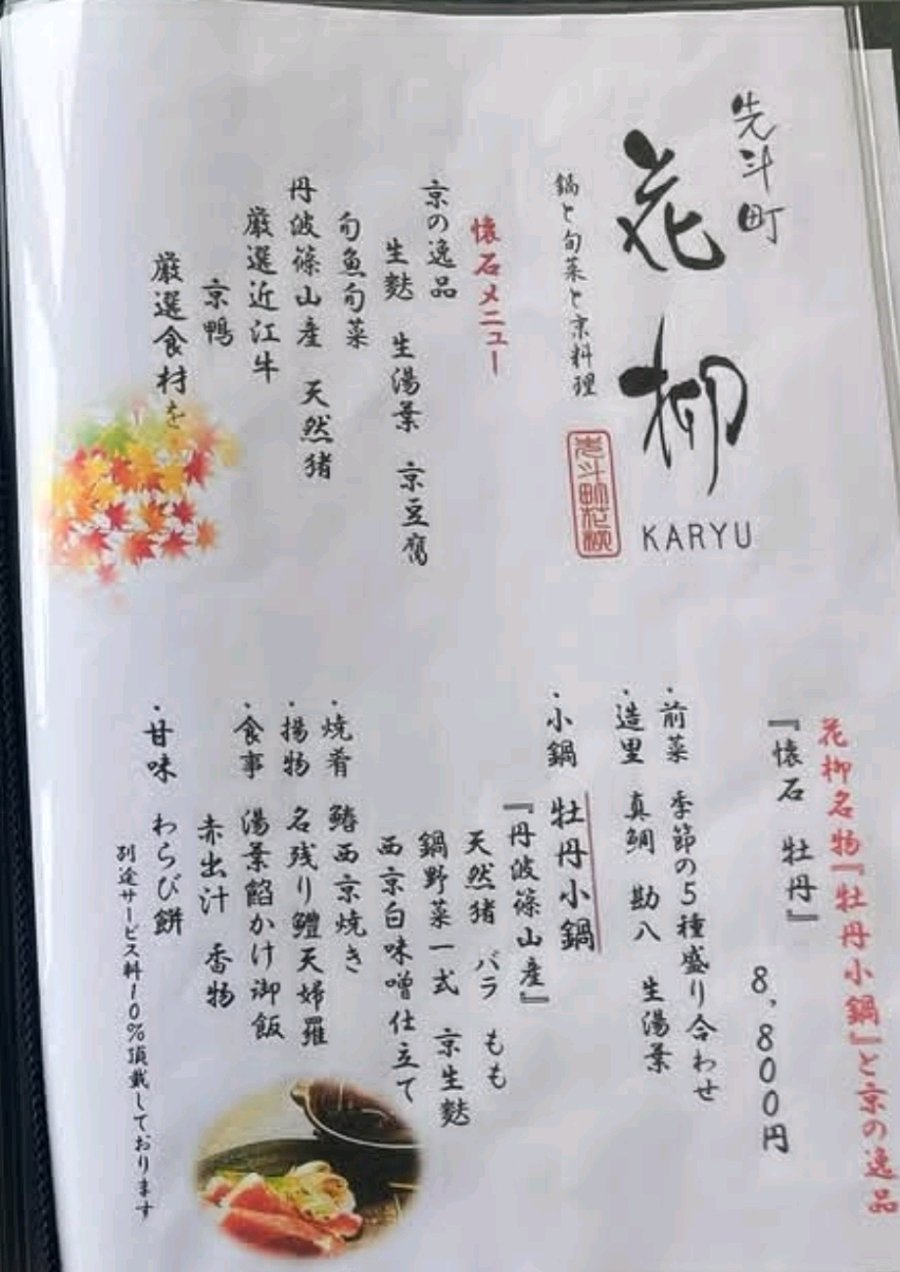 先斗町
花柳
KARYU
鍋と旬菜と京料理
先斗町花柳
懐石メニュー
京の逸品
生麩　生湯葉　京豆腐
旬魚旬菜
丹波篠山産　天然猪
厳選近江牛
京鴨
厳選食材を
花柳名物『牡丹小鍋』と京の逸品
『懐石　牡丹』
8,800円
・前菜　季節の5種盛り合わせ
・造里　真鯛　勘八　生湯葉
・小鍋　牡丹小鍋
『丹波篠山産』
天然猪　バラ　もも
鍋野菜一式　京生麩
西京白味噌仕立て
・焼肴　鰆西京焼き
・揚物　名残り鱧天婦羅
・食事　湯葉餡かけ御飯
赤出汁　香物
・甘味　わらび餅
別途サービス料10%頂戴しております